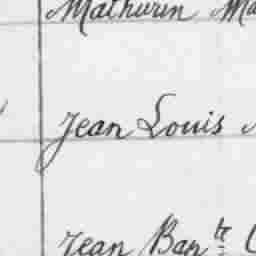 Mathurin Ma
Jean Louis
Jean Bapte